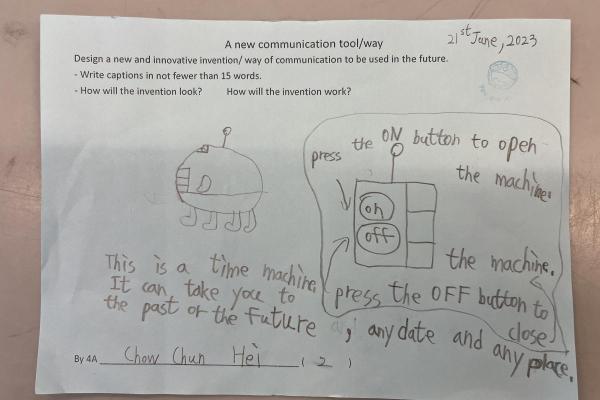 21st June, 2023
A new communication tool/way
Design a new and innovative invention/ way of communication to be used in the future.
- Write captions in not fewer than 15 words.
- How will the invention look? How will the invention work?
press the ON button to open
the machine.
on
off
the machine.
press the OFF button to
close
This is a time machine.
It can take you to
the past or the future, any date and any place.
By 4A Chow Chun Hei ( 2 )